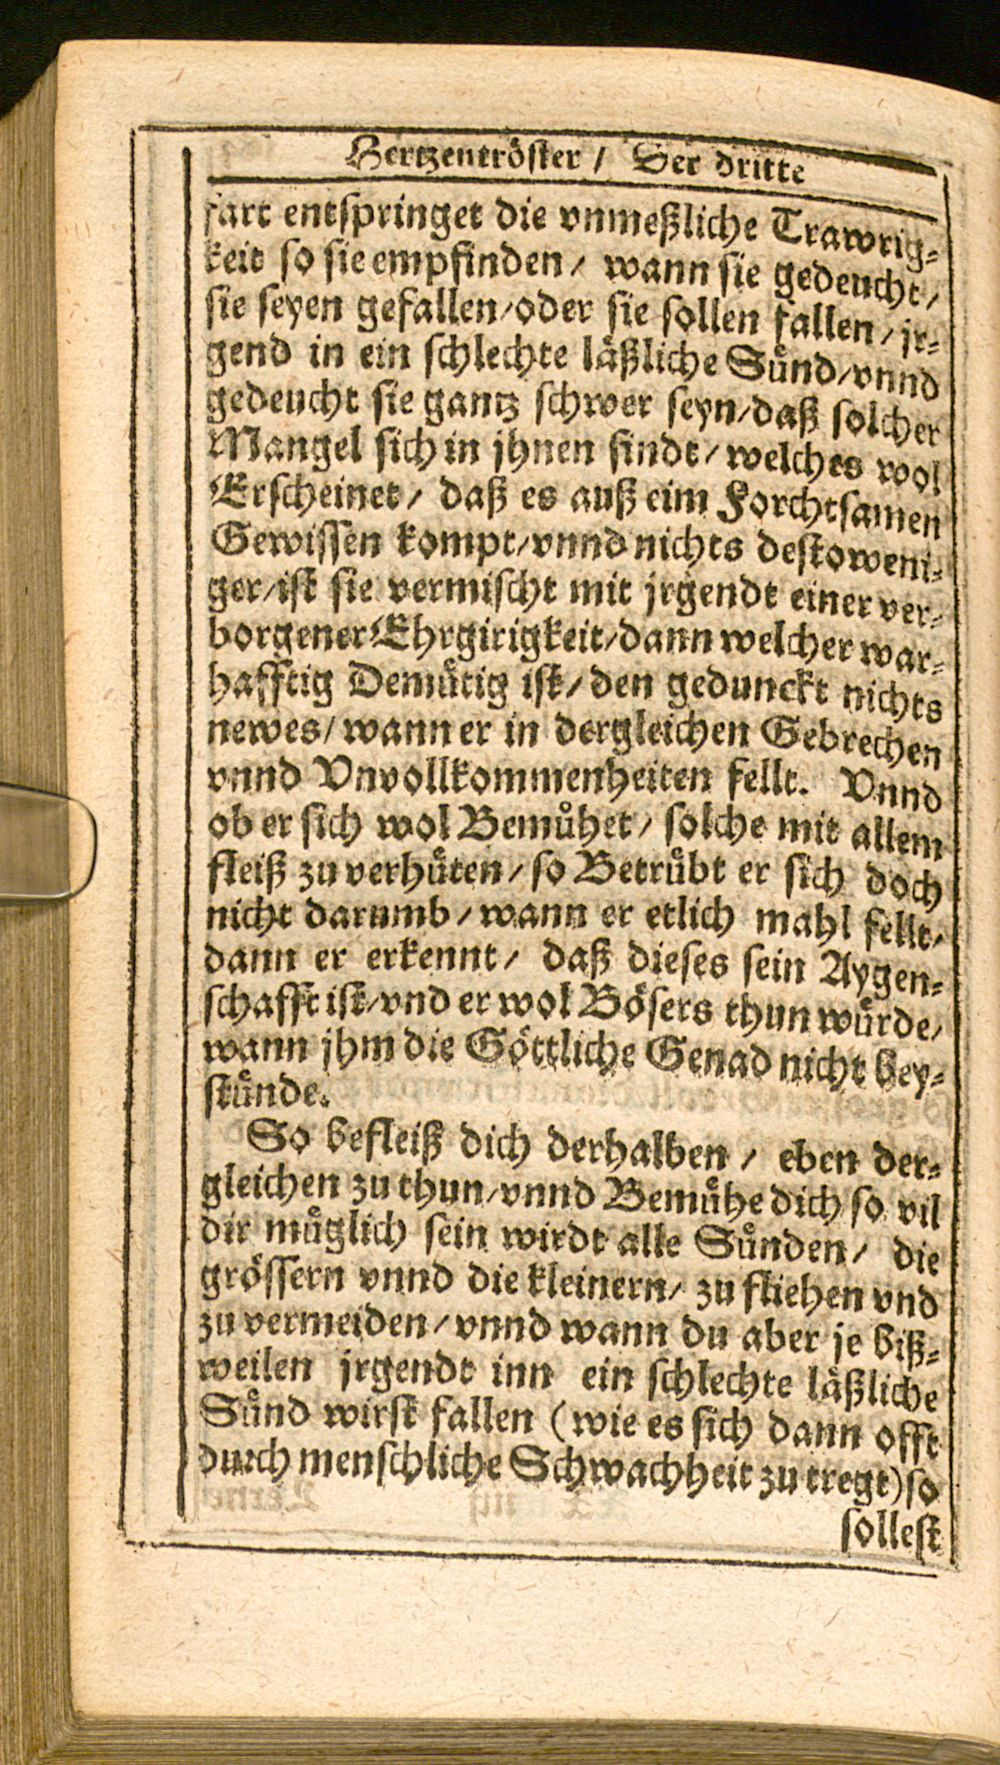 Hertzentröster / Der dritte
fart entspringet die vnmeßliche Trawrig-
keit so sie empfinden / wann sie gedeucht /
sie seyen gefallen / oder sie sollen fallen / jr-
gend in ein schlechte läßliche Sünd / vnnd
gedeucht sie gantz schwer seyn / daß solcher
Mangel sich in jhnen findt / welches wol
Erscheinet / daß es auß eim Forchtsamen
Gewissen kompt / vnnd nichts destoweni-
ger / ist sie vermischt mit jrgendt einer ver-
borgener Ehrgirigkeit / dann welcher war-
hafftig Demütig ist / den gedunckt nichts
newes / wann er in dergleichen Gebrechen
vnnd Vnvollkommenheiten fellt. Vnnd
ob er sich wol Bemühet / solche mit allem
fleiß zu verhüten / so Betrübt er sich doch
nicht darumb / wann er etlich mahl fellt /
dann er erkennt / daß dieses sein Aygen-
schafft ist / vnd er wol Bösers thun würde /
wann jhm die Göttliche Genad nicht bey-
stünde.
So befleiß dich derhalben / eben der-
gleichen zu thun / vnnd Bemühe dich so vil
dir müglich sein wirdt alle Sünden / die
grössern vnnd die kleinern / zu fliehen vnd
zu vermeiden / vnnd wann du aber je biß-
weilen jrgendt inn ein schlechte läßliche
Sünd wirst fallen (wie es sich dann offt
durch menschliche Schwachheit zu tregt) so
sollest